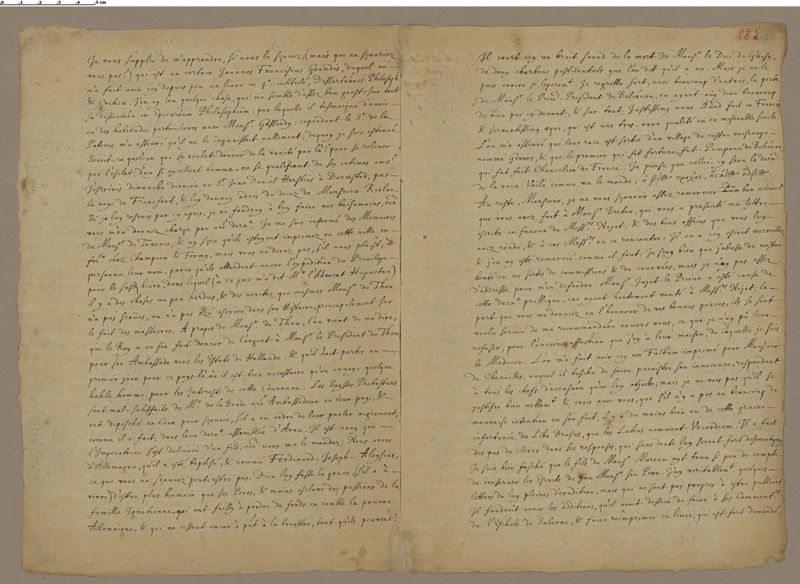 Je vous supplie de m'apprendre, si vous le sçavez, (mais que ne sçauriez
vous pas?) qui est un certain Joannes Franciscus Grandis, duquel on
m'a fait voir icy depuis peu un livre in 4°. intitulé, Dissertationes Philosoph.
& Criticæ. J'en ay leu quelque chose, qui me semble d'assez bon goust, sur tout
sa dissertation in Epicuream Philosophiam: par laquelle il tesmoigne d'avoir
eu des habitudes particulieres avec Mons.r Gassendy; cependant le S.r de la
Poterie m'a asseuré qu'il ne le cognoissoit nullement; dequoy je suis estonné.
Seroit-ce quelcun qui se voulut donner de la vanité par là, pour se relever
par l'esclat d'un si excellent homme, en se qualifiant de ses intimes amis?
J'escrivis dimanche dernier au S.r Jean Daniel Horstius à Darmstad, par
la voye de Francfort, & luy donnay advis du decez de Monsieur Riolan.
Si je luy rescris par cy apres, je ne faudray à luy faire vos baisemains,
vous m'en donnez charge par vre dern.e Je me suis informé des Memoires
de Mons.r de Tavanes, & ay sçeu qu'ils estoyent imprimez en cette ville in
fol.° chez Champion & Fourmy, mais vous ne direz pas, s'il vous plaist, à
personne leur nom, parce qu'ils attendent encor l'expedition du Privilege
pour le susd.t livre, dans lequel (à ce que m'a dit M.r l'Advocat Huguetan)
il y a des choses un peu hardies, & des veritez que mesmes Mons.r de Thou
n'a pas sceües, ou n'a pas osé escrire dans son Histoire, principalement sur
le fait des massacres. A propos de Mons.r de Thou, l'on vient de me dire,
que le Roy a en fin fait donner de l'argent à Mons.r le President de Thou
pour son Ambassade vers les Estats de Hollande, & qu'il doit partir au
premier jour pour ce pays-là, où il est bien necessaire qu'on envoye quelque
habile homme, pour les Interests de cette Couronne. Les Suysses Protestans
sont mal-satisfaits de M.r de la Barde nre Ambassadeur en leur pays, &
ont depesché en Cour pour sçavoir, s'il a eu ordre de leur parler aigrement,
comme il a fait, dans leur dern.e assemblée d'Arau. Il est vray que
l'Imperatrice s'est delivrée d'un fils, comme vous me le mandez: Nous avons
d'Allemagne, qu'il a esté baptisé, & nommé Ferdinand-Joseph-Aloysius,
ce que vous ne sçaviez peut estre pas. Dieu luy fasse la grace (s'il a à
vivre) d'estre plus humain que ses Peres, & moins esclave des passions de la
famille Ignatienne, qui ont failly à perdre de fonds en comble la pauvre
Allemaigne, & qui ne cessent encor à pñt à la troubler, tant qu'ils peuvent!
Il court icy un bruit sourd de la mort de Mons.r le Duc de Guise,
de deux charbons pestilentiels que l'on dit qu'il a eu. Mais je ne le
puis croire si legerem.t Je regrette fort, avec beaucoup d'autres, la perte
de Mons.r le Prem. President de Believre, en ayant ouy dire beaucoup
de bien par cy devant, & sur tout, Justissimus unus Quod fuit in Francis
& servantissimus æqui, qui est une tres-rare qualité en ce miserable siecle.
L'on m'a asseuré que leur race est sortie d'un village de nostre voisinage
nommé Givors, & que le premier qui fit fortune, fut Pompone de Believre
qui fut fait Chancelier de France. Je pense que celui-cy sera le dernier
de la race. Voila comme va le monde,
Au reste, Monsieur, je ne vous sçaurois assez remercier du bon accueil
que vous avez fait à Mons.r Breton, qui vous a presenté ma lettre
escrite en faveur de Mess.rs Nojat, & des bons offices que vous luy
avez rendus, & à ces Mess.rs en ce rencontre. Il en a icy escrit merveilles
& j'en ay esté remercié comme il faut. Je sçay bien que j'abuse de vostre
bonté en ces sortes de commissions & de courvées, mais je n'ay pas assez
d'addresse pour m'en defendre. Mons.r Jujat le Prieur a esté cause de
cette dern.e prattique, car ayant hautement vanté à Mess.rs Nojat, la
part que vous me donniez en l'honneur de vos bonnes graces, ils se sont
voulu servir de ma recommandaõn envers vous, ce que je n'ay pû leur
refuser, pour l'ancienne affection que j'ay à leur maison, de laquelle je suis
le Medecin. L'on m'a fait voir icy un Factum imprimé pour Monsieur
de Chenailles, auquel il tasche de faire paroistre son innocence, respondant
à tous les chefs d'accusaõn qu'on luy objecte, mais je ne vois pas qu'il se
justifie bien nettem.t & crois avec vous, que s'il n'y a pas eu beaucoup de
mauvaise intention en son fait, il y a du moins bien eu de cette graine
infortunée de Libo Drusus, que les Latins nomment Vecordiam. Il a fait
des pas de clercs dans ses responses, qui sans doute luy seront fort desavantageux.
Je suis bien fasché que le fils de Mons.r Moreau ayt tenu si peu de compte
de conserver les Escrits de feu Mons.r son Pere. J'ay veritablem.t quelques
lettres de luy pleines d'erudition, mais qui ne sont pas propres à estre publiées
Il faudroit avoir les additions, qu'il avoit dessein de faire à ses Comment.s
de l'Eschole de Salerne, & faire reimprimer ce livre, qui est fort demandé,